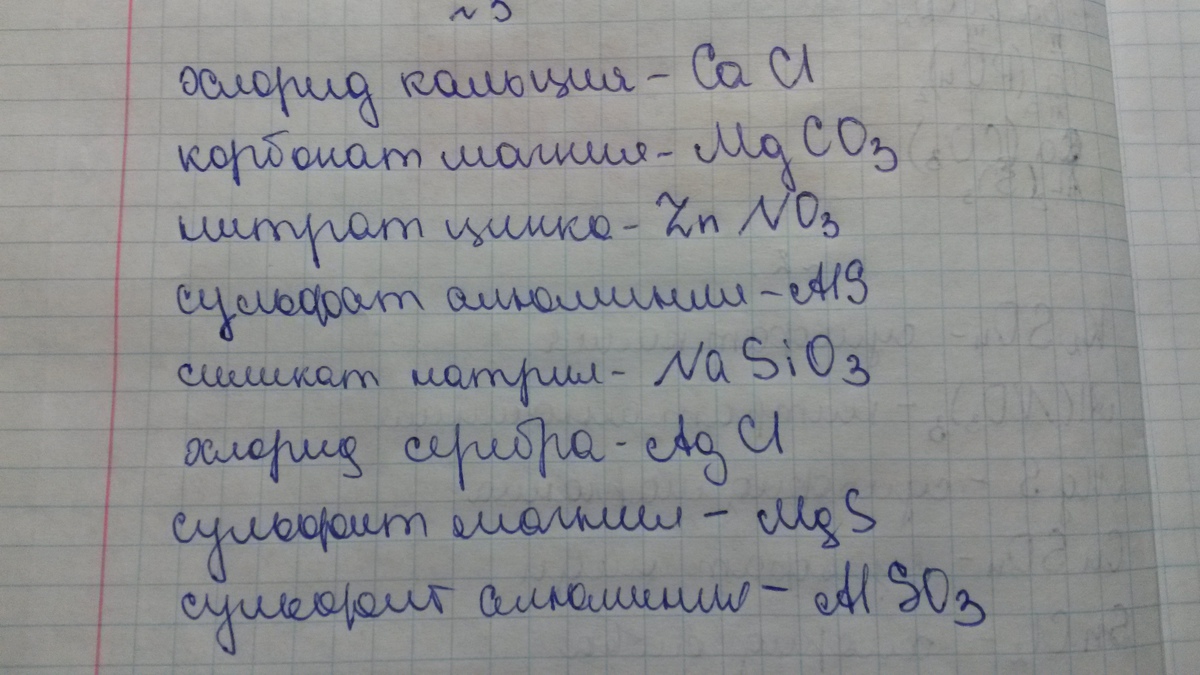 №3
хлорид кальция - CaCl
корбонат магния - MgCO3
нитрат цинка - ZnNO3
сульфат алюминии - AlS
силикат натрия - NaSiO3
хлорид серебра - AgCl
сульфит магния - MgS
сульфит алюминии - AlSO3